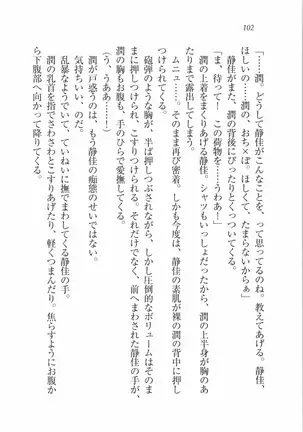 102
「……潤、どうして静佳がこんなことを、って思ってるのね。教えてあげる。静佳、
ほしいの……潤の、おち×ぽ。ほしくて、たまらないからぁ」
静佳がまた、潤の背後にぴったりとくっついてくる。
「ま、待って！　この荷物を……うわあ！」
潤の上着をまくりあげる静佳。シャツもいっしょだったから、潤の上半身が胸のあ
たりまで露出してしまう。
ムニュ……。そのまま再び密着。しかも今度は、静佳の素肌が裸の潤の背中に押し
つけられてくる。
砲弾のような胸が、半ば押しつぶされながら、しかし圧倒的なボリュームはそのま
まに押しつけられ、こすりつけられる。それだけでなく、前へまわされた静佳の手が、
潤の胸もお腹も、手のひらで愛撫してくる。
(う、うああ……！)
潤が戸惑うのは、もう静佳の痴態のせいではない。
気持ちいい、のだ。
乱暴なようでいて、ていねいに撫でまわしてくる静佳の手。
潤の乳首を指でさわさわとこすりあげたり、軽くつまんだり。焦らすようにお腹か
ら下腹部へ向かって降りてくる。